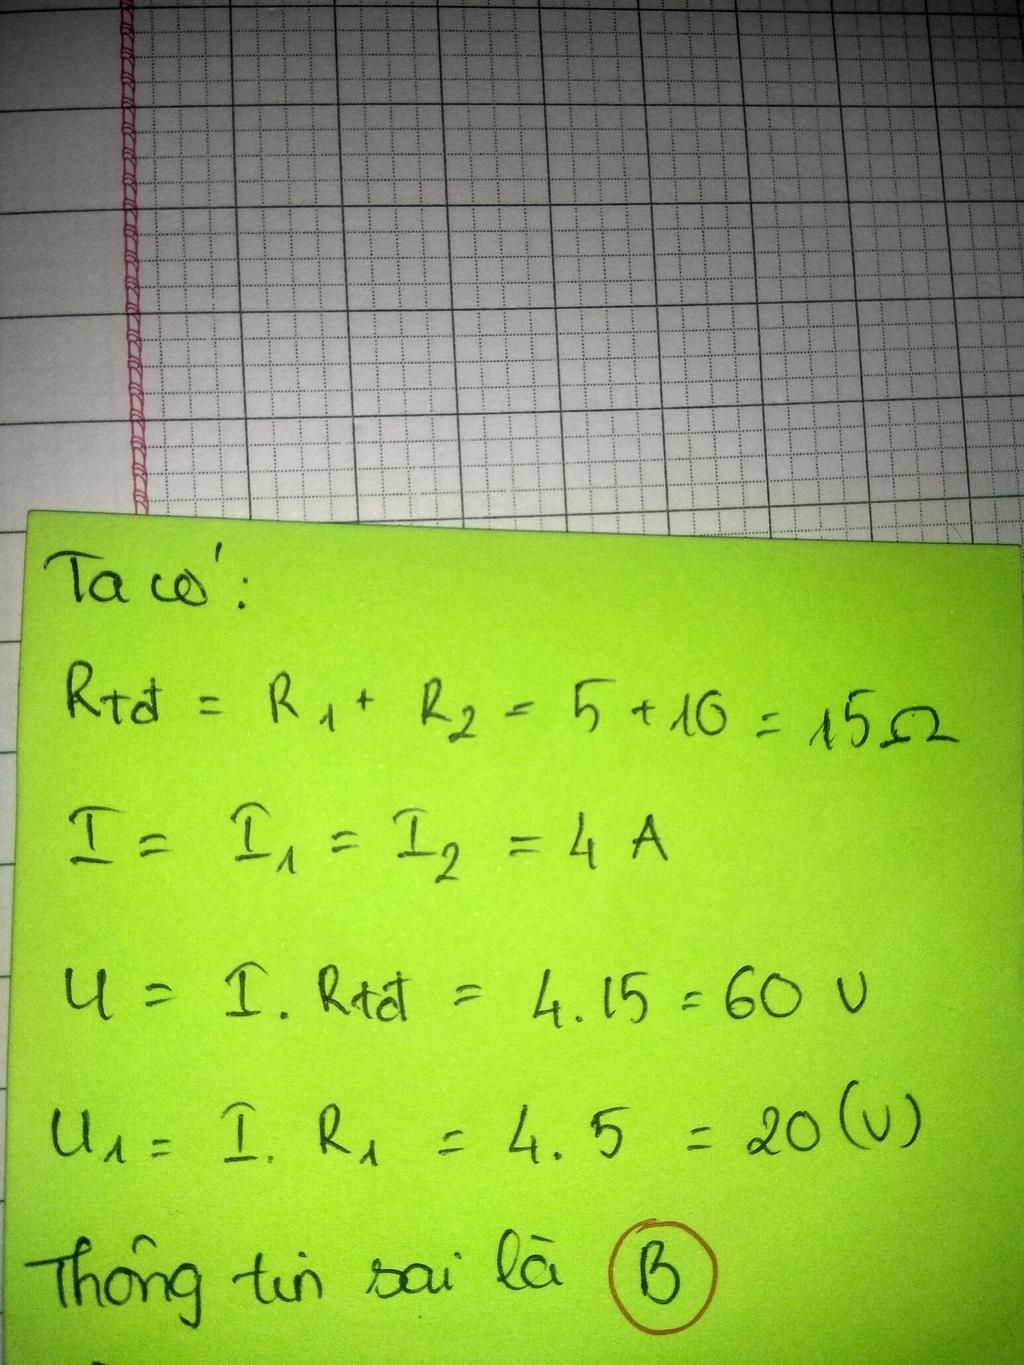 Ta có:
Rtđ = R1 + R2 = 5 + 10 = 15Ω
I = I1 = I2 = 4 A
U = I. Rtđ = 4.15 = 60 V
U1 = I. R1 = 4. 5 = 20 (V)
Thông tin sai là B